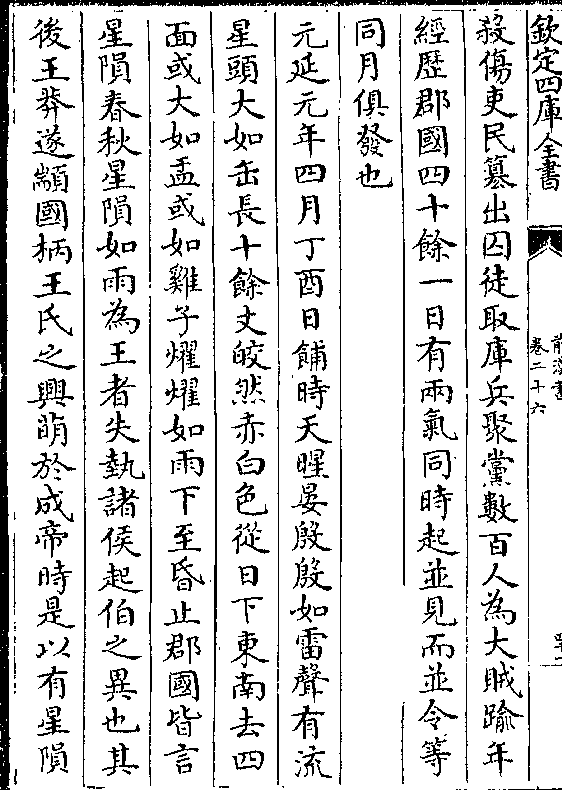 欽定四庫全書
前漢書
卷二十六
殺傷吏民篡出囚徒取庫兵聚黨數百人為大賊踰年
經歷郡國四十餘一日有兩氣同時起並見而並令等
同月俱發也
元延元年四月丁酉日餔時天暒晏殷殷如雷聲有流
星頭大如缶長十餘丈皎然赤白色從日下東南去四
面或大如盂或如雞子燿燿如雨下至昏止郡國皆言
星隕春秋星隕如雨為王者失埶諸侯起伯之異也其
後王莽遂顓國柄王氏之興萌於成帝時是以有星隕